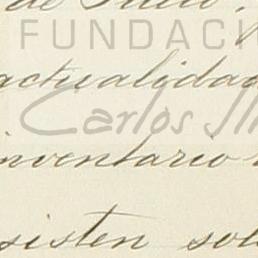 de
FUNDACI
actualidad
Carlos
inventario
sisten sol